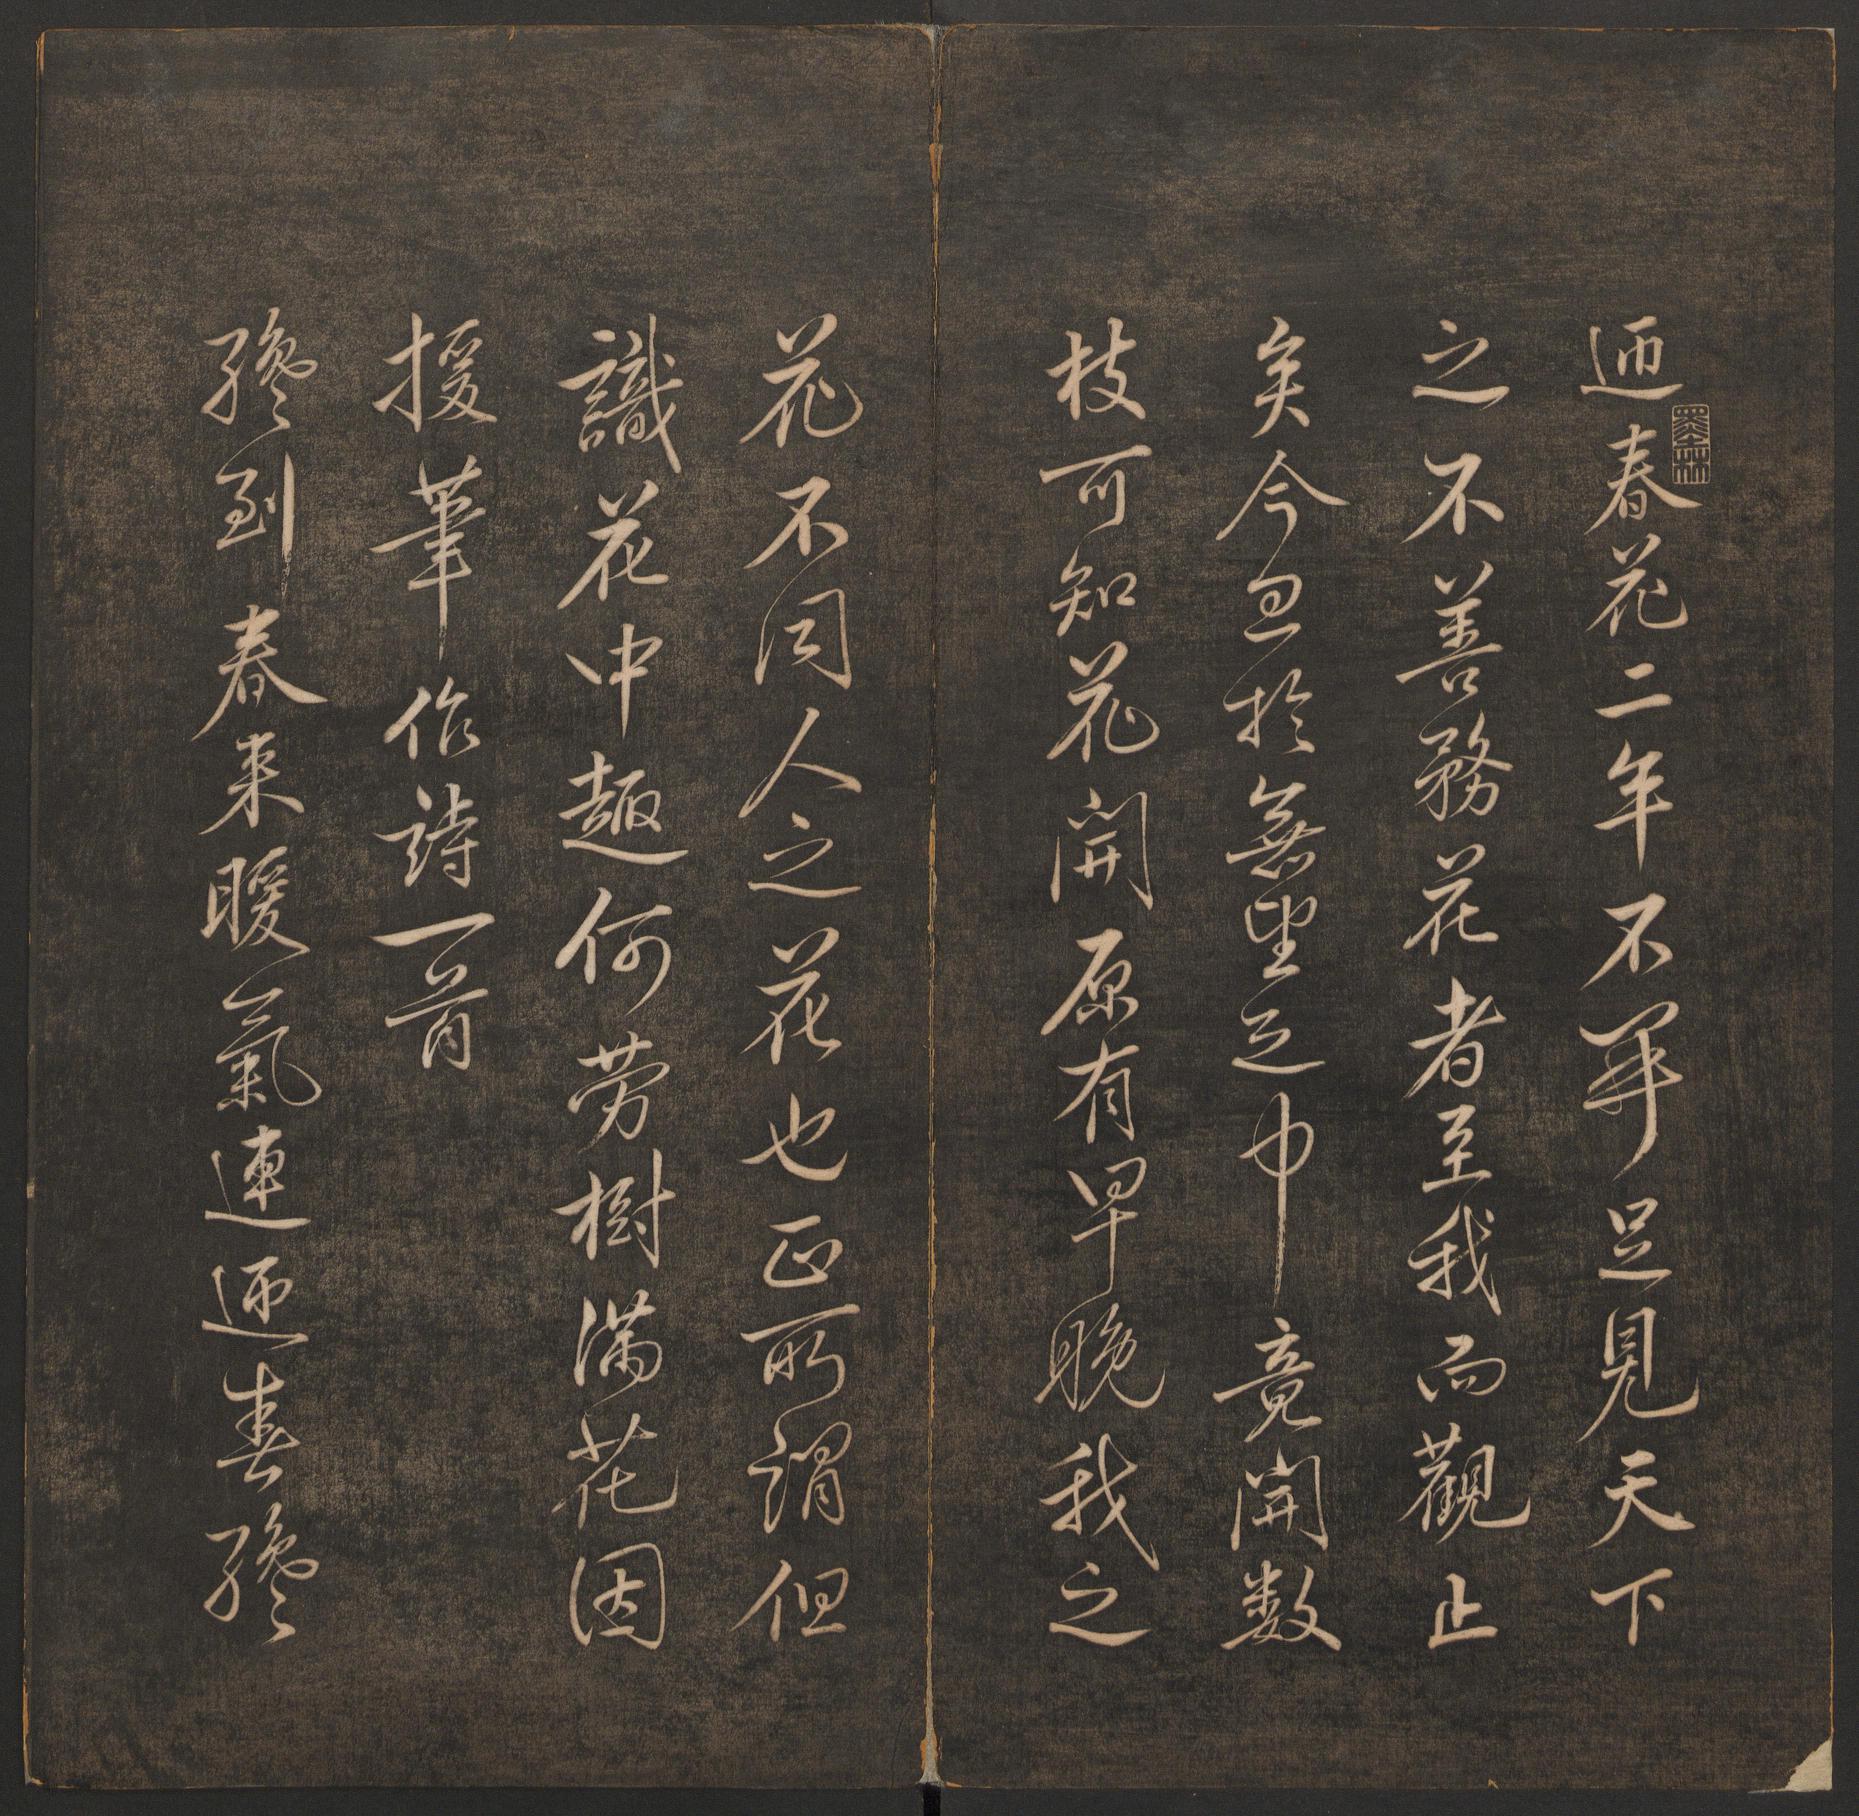 迎春花二年不芽足見天下
墨林
之不善務花者至我而觀止
矣今忽於無望之中竟開數
枝可知花開原有早晚我之
花不同人之花也正所謂但
識花中趣何勞樹滿花因
援筆作詩一首
纔到春來暖氣連迎春纔